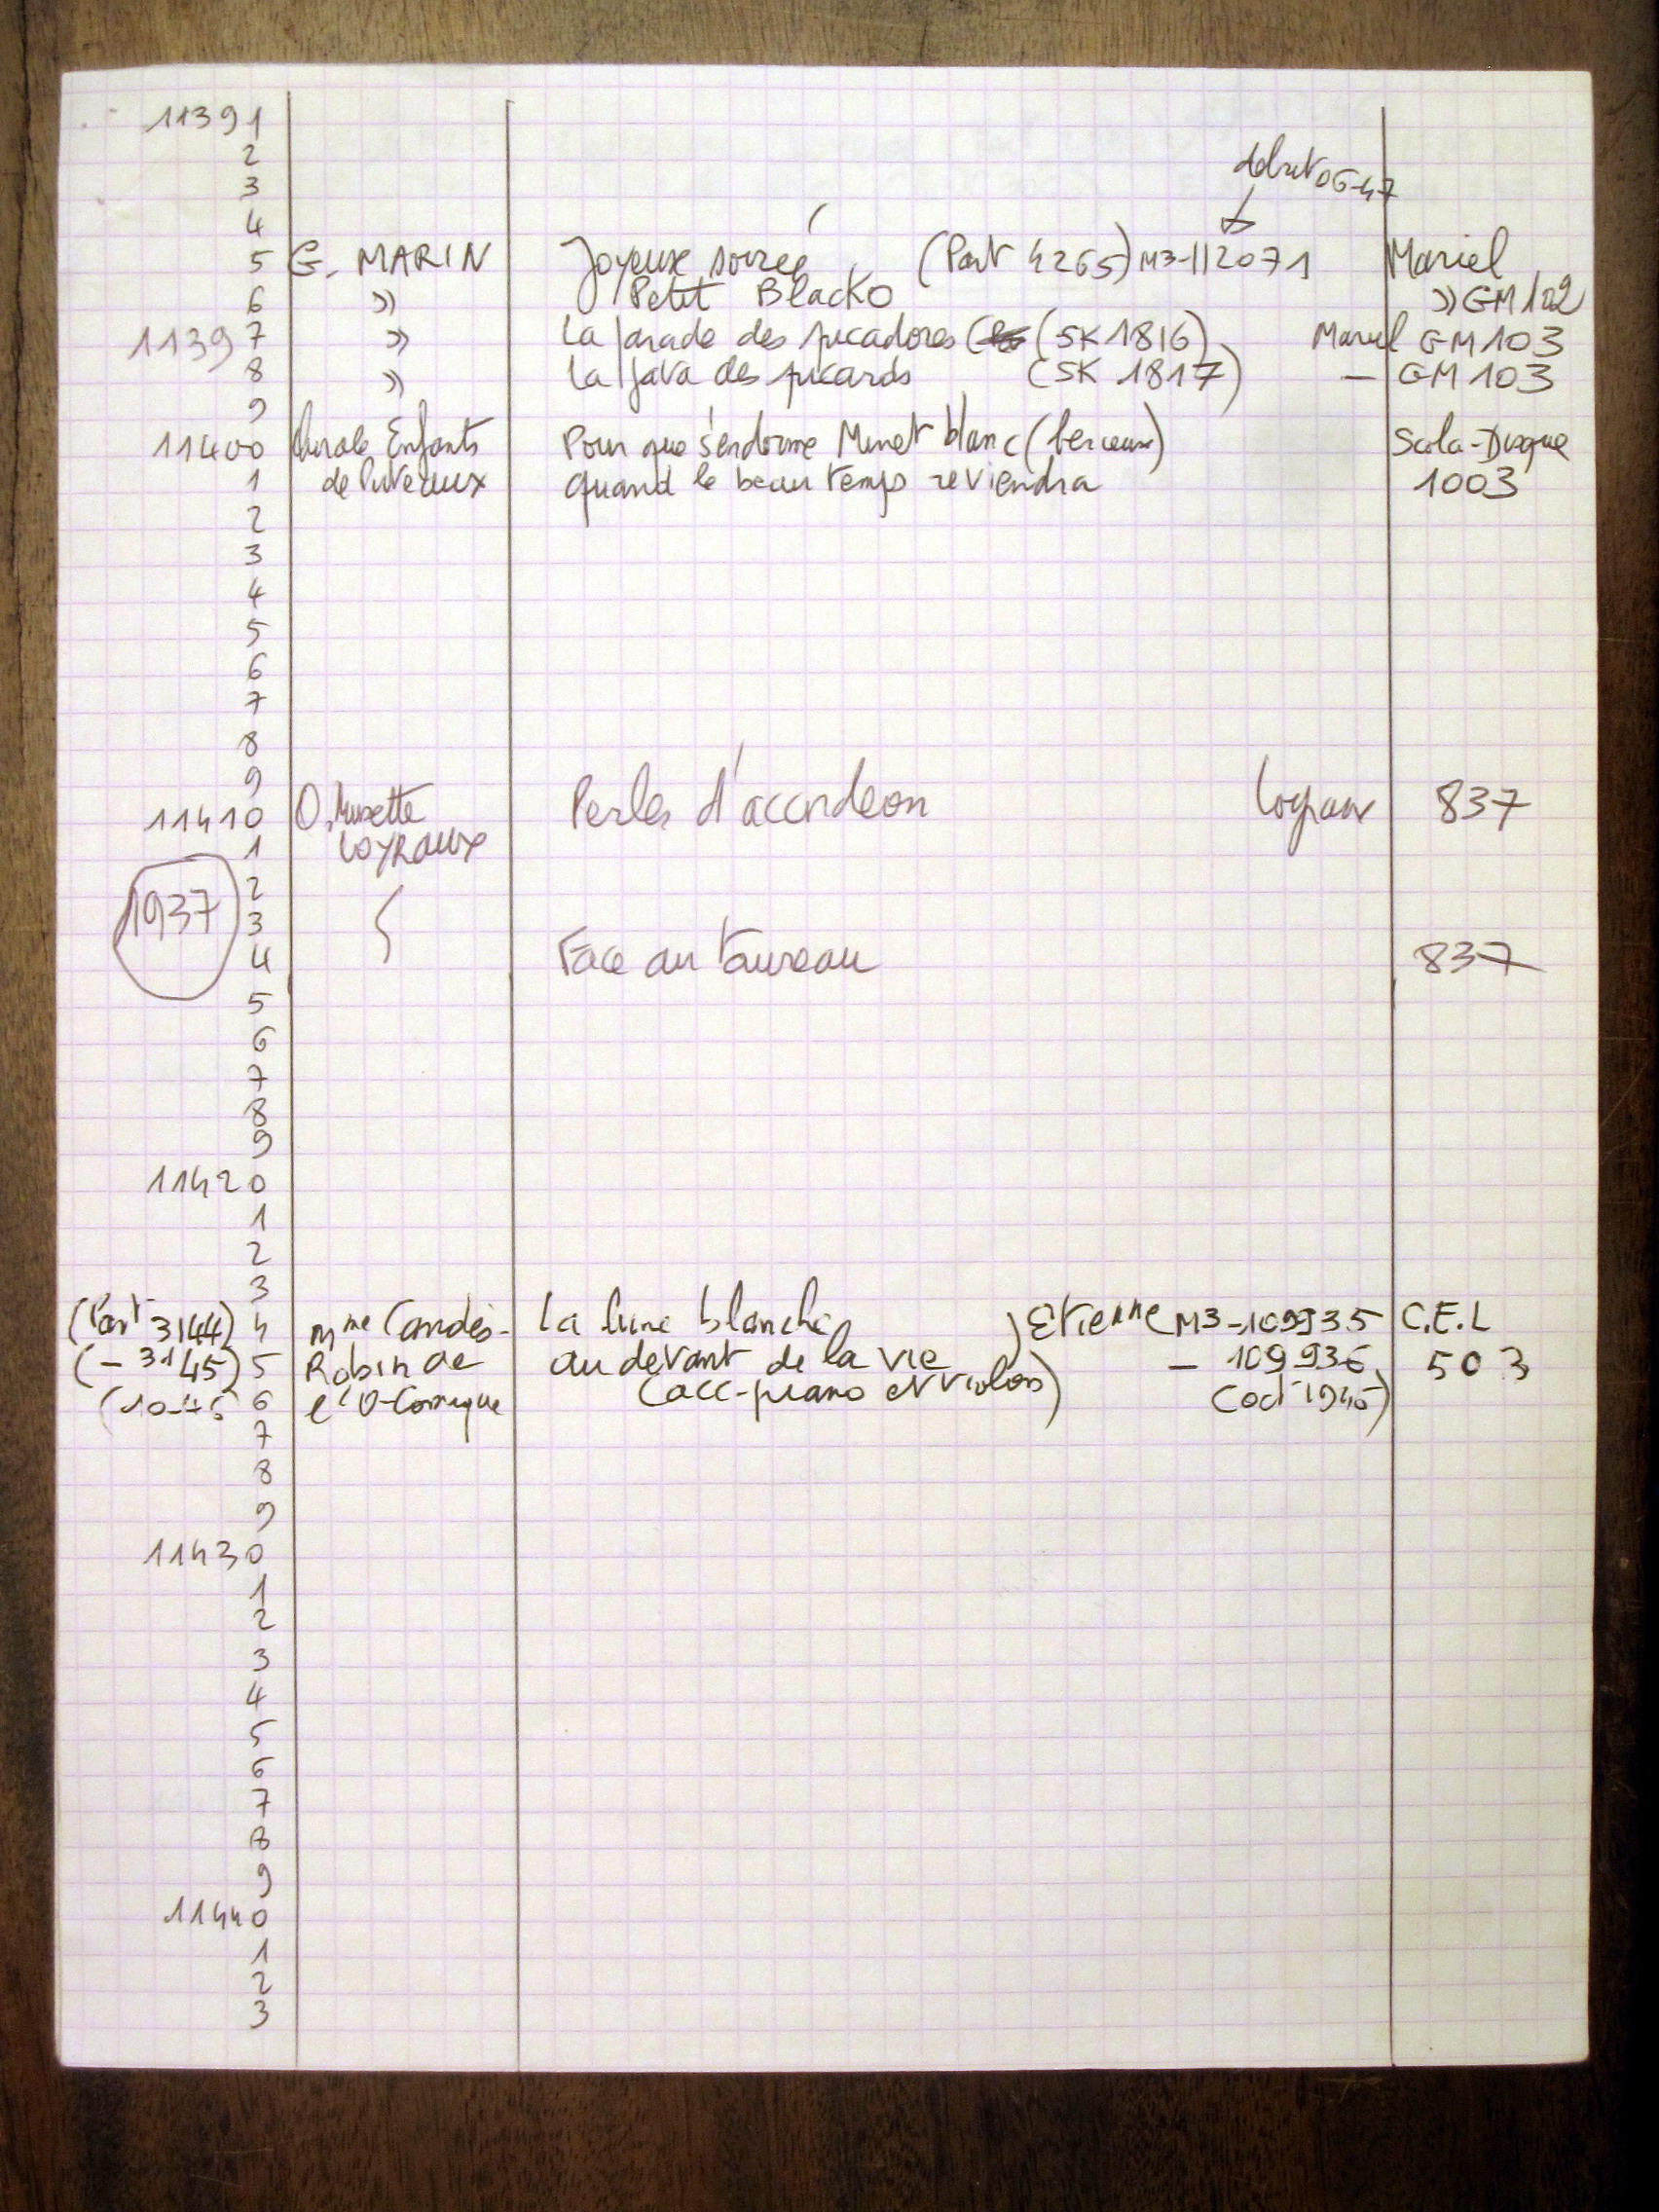 11391
2
début 06-47
3
4
5 G. MARIN Joyeuse soirée (Part 4265) M3-112071 Mariel
6 » Petit Blacko » GM 102
11397 » La parade des picadores (SK 1816) Mariel GM 103
8 » La java des picards (SK 1817) — GM 103
9
11400 Chorale Enfants Pour que s'endorme Minet blanc (berceuse) Scola-Disque
1 de Puteaux quand le beau temps reviendra 1003
2
3
4
5
6
7
8
9
11410 O. Musette Perles d'accordeon Loyraux 837
1 LOYRAUX
2
1937 3
4 Face au taureau 837
5
6
7
8
9
11420
1
2
3
(Part 3144) 4 Mme Candès- La lune blanche ) Etienne (M3-109935 C.E.L
(— 3145) 5 Robin de au devant de la vie — 109936 503
(10-45 6 l'O-Comique (acc-piano et violon) (oct 1945)
7
8
9
11430
1
2
3
4
5
6
7
8
9
11440
1
2
3